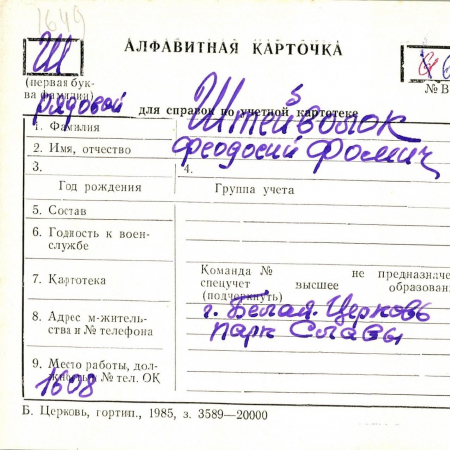 1649
Ш
АЛФАВИТНАЯ КАРТОЧКА
(первая бук-
ва фамилии)
№ В
рядовой
для справок по учетной картотеке
1. Фамилия Штейволок
2. Имя, отчество Феодосий Фомич
3. 4.
Год рождения Группа учета
5. Состав
6. Годность к воен-
службе
7. Картотека
Команда № не предназначе
спецучет высшее образовани
(подчеркнуть)
8. Адрес м-житель-
ства и № телефона
г. Белая-Церковь
парк Славы
9. Место работы, дол-
жность и № тел. ОК
1608
Б. Церковь, гортип., 1985, з. 3589—20000